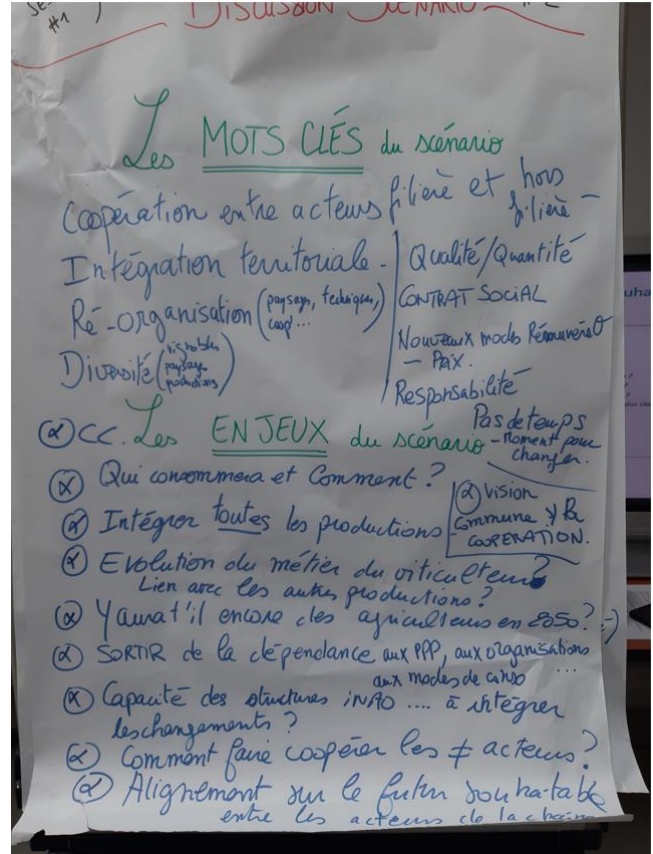 #1
DISCUSSION SCENARIO
Les MOTS CLÉS du scénario
Coopération entre acteurs filière et hors filière -
Intégration territoriale -
Ré-organisation (paysage, techniques, coop°...
Diversité (vignobles paysage productions)
Qualité/Quantité
CONTRAT SOCIAL
Nouveaux modes Rémunérat°
- PRIX.
Responsabilité
Pas de temps
- Moment pour changer.
α CC. Les ENJEUX du scénario
α Qui consommera et Comment ?
α Intégrer toutes les productions
α Vision
commune
COOPERATION.
α Evolution du métier du viticulteur ?
Lien avec les autres productions ?
α Y aurat'il encore des agriculteurs en 2050 ? :-)
α SORTIR de la dépendance aux PPP, aux organisations
aux modes de conso ...
α Capacité des structures iNAO .... à intégrer
les changements ?
α Comment faire coopérer les ≠ acteurs ?
α Alignement sur le futur souhaitable
entre les acteurs de la chaine